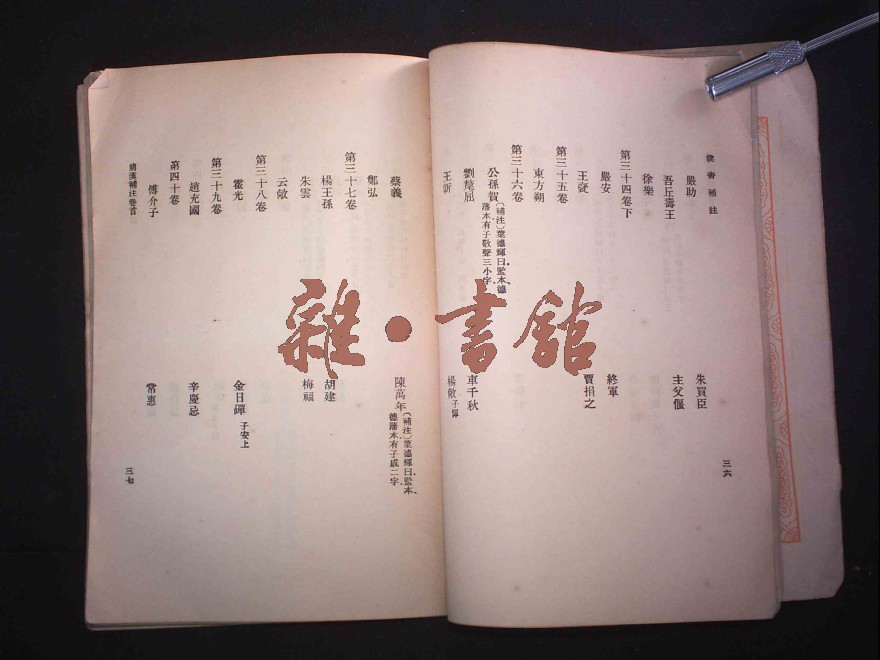 漢書補註
嚴助
朱買臣
吾丘壽王
主父偃
徐樂
第三十四卷下
嚴安
終軍
王襃
賈捐之
第三十五卷
東方朔
第三十六卷
公孫賀〔補注〕葉德輝曰、監本、德藩本有子敬聲三小字。
劉屈氂
車千秋
王訢
楊敞 子惲
三六
蔡義
陳萬年〔補注〕葉德輝曰、監本、德藩本有子咸二字。
鄭弘
第三十七卷
楊王孫
胡建
朱雲
梅福
云敞
第三十八卷
霍光
金日磾 子安上
第三十九卷
趙充國
辛慶忌
第四十卷
傅介子
常惠
前漢補注卷首
三七
雜·書館